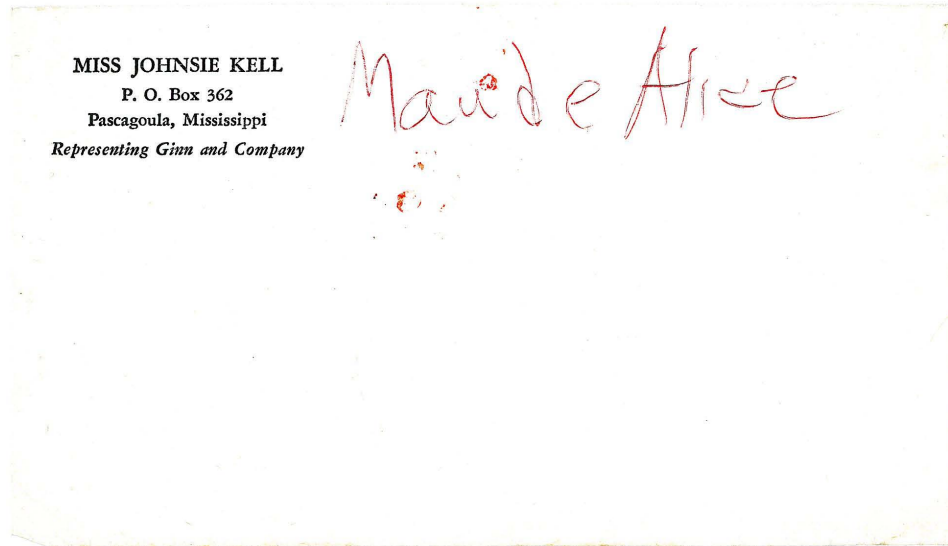 MISS JOHNSIE KELL
P. O. Box 362
Pascagoula, Mississippi
Representing Ginn and Company
Maude Alice